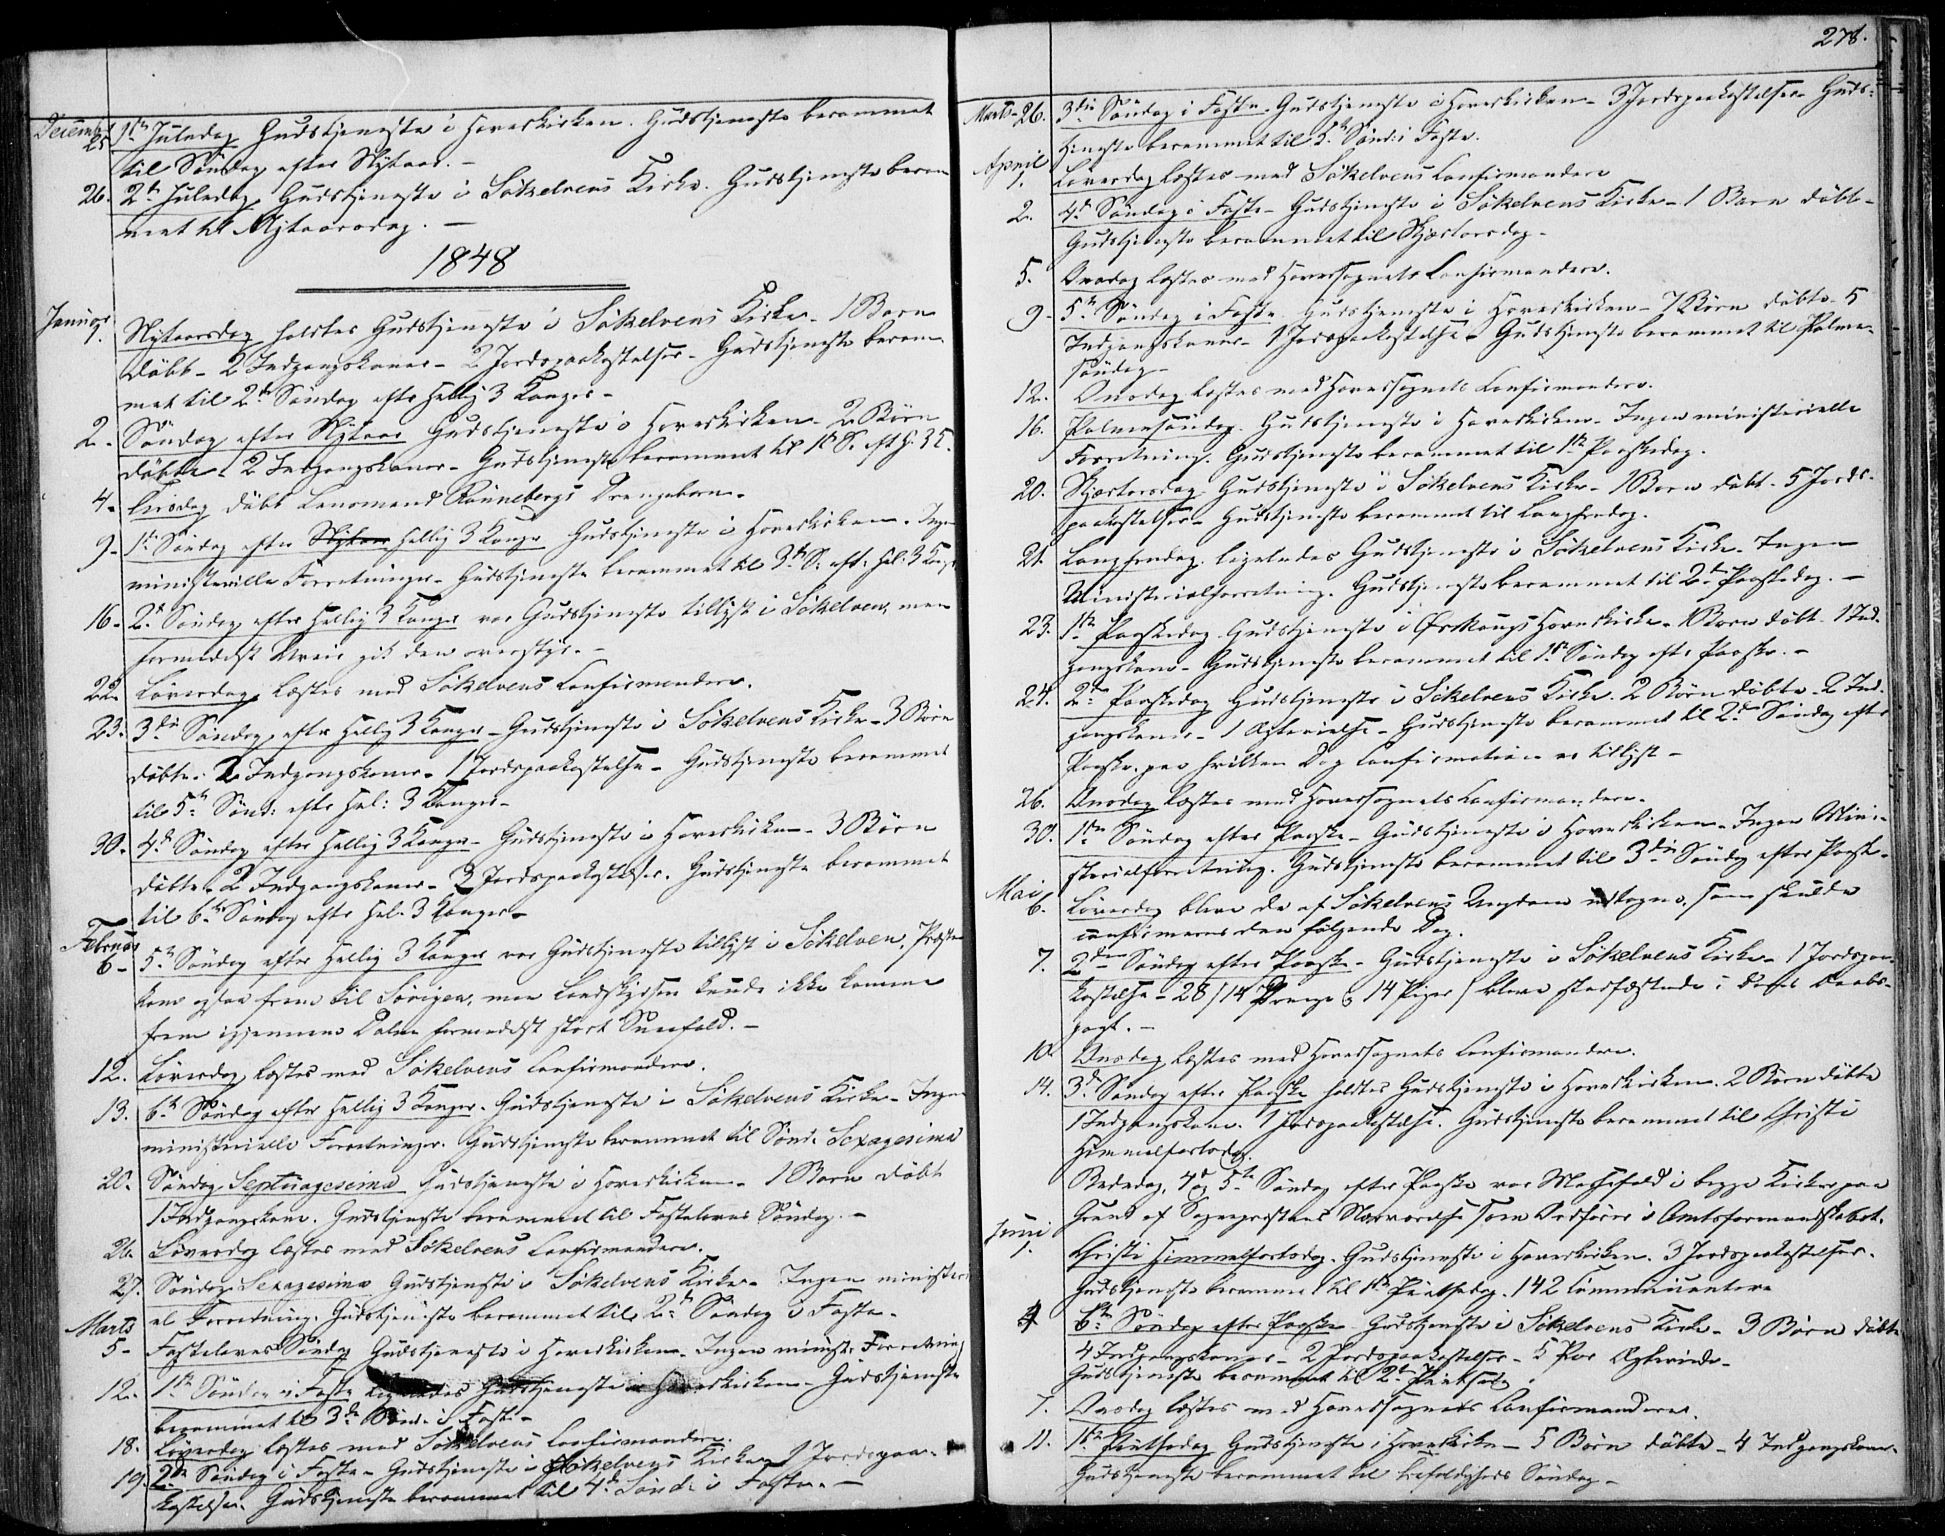 Decemb.
25 1ste Juledag Gudstjeneste i Hovedkirken. Gudstjeneste berammet
til Søndag efter Nytaar. –
26. 2d Juledag Gudstjeneste i Søkelvens Kirke. Gudstjeneste beram
met til Nytaarsdag. –
1848
Januar
1. Nytaarsdag holdtes Gudstjeneste i Søkelvens Kirke – 1 Barn
døbt – 2 Indgangskoner – 2 Jordspaakastelser – Gudstjeneste beram
met til 2den Søndag efter Hellig 3 Konger –
2. Søndag efter Nytaar Gudstjeneste i Hovedkirken – 2 Børn
døbte – 2 Indgangskoner – Gudstjeneste berammet til 1ste S. eft. H. 3 K.
4. Tirsdag døbt Lensmand Rønnebergs Drengebarn.
9. 1ste Søndag efter Nytaar Hellig 3 Konger Gudstjeneste i Hovedkirken. Ingen
ministerielle Forretninger – Gudstjeneste berammet til 3die S. eft. Hel. 3 Kong.
16. 2d Søndag efter Hellig 3 Konger var Gudstjeneste tillyst i Søkelven, men
formedelst Uveir gik den overstyr. –
22. Løverdag læstes med Søkelvens Confirmander.
23. 3die Søndag efter Hellig 3 Konger – Gudstjeneste i Søkelvens Kirke – 3 Børn
døbte. 2 Indgangskoner – 1 Jordspaakastelse – Gudstjeneste berammet
til 5te Sønd: efter Hel: 3 Konger –
30. 4de Søndag efter Hellig 3 Konger – Gudstjeneste i Hovedkirken – 3 Børn
døbte. 2 Indgangskoner – 3 Jordspaakastelser. Gudstjeneste berammet
til 6te Søndag efter Hel. 3 Konger –
Februar
6 – 5te Søndag efter Hellig 3 Konger var Gudstjeneste tillyst i Søkelven, Præsten
kom ogsaa frem til men Landskydsen kunde ikke komme
frem igjennem Dalen formedelst stort Sneefald. –
12. Løverdag læstes med Søkelvens Confirmander.
13. 6te Søndag efter Hellig 3 Konger. Gudstjeneste i Søkelvens Kirke – Ingen
ministerielle Forretninger. Gudstjeneste berammet til Sønd. Sexagesima
20. Søndag Septuagesima Gudstjeneste i Hovedkirken – 1 Barn døbt
1 Indgangskone. Gudstjeneste berammet til Fastelavns Søndag. –
26. Løverdag læstes med Søkelvens Confirmander.
27. Søndag Sexagesima Gudstjeneste i Søkelvens Kirke – Ingen ministeri
el Forretning. Gudstjeneste berammet til 2den Søndag i Faste.
Marts
5 – Fastelavns Søndag Gudstjeneste i Hovedkirken – Ingen minist. Forretning
12. 1ste Søndag i Faste ligeledes Gudstjeneste i Hovedkirken – Gudstjeneste
berammet til 3die Sønd. i Faste –
18. Løverdag læstes med Søkelvens Confirmander.
19. 2den Søndag i Faste – Gudstjeneste i Søkelvens Kirke – 1 Jordspaa-
kastelse. Gudstjeneste berammet til 4de Sønd. i Faste. –
278.
Marts 26. 3die Søndag i Faste. Gudstjeneste i Hovedkirken – 3 Jordspaakastelser Guds-
tjeneste berammet til 5te Sønd: i Faste.
April
1. Løverdag læstes med Søkelvens Confirmander
2. 4de Søndag i Faste – Gudstjeneste i Søkelvens Kirke – 1 Barn døbt –
Gudstjeneste berammet til Skjærtorsdag –
5. Onsdag læstes med Hovedsognets Confirmander.
9 – 5te Søndag i Faste Gudstjeneste i Hovedkirken – 7 Børn døbte – 5
Indgangskoner – 1 Jordspaakastelse – Gudstjeneste berammet til Palme-
søndag –
12. Onsdag læstes med Hovedsognets Confirmander.
16. Palmesøndag. Gudstjeneste i Hovedkirken – Ingen ministerielle
Forretning. Gudstjeneste berammet til 1ste Paaskedag.
20. Skjærtorsdag. Gudstjeneste i Søkelvens Kirke – 1 Barn døbt – 5 Jords-
paakastelser – Gudstjeneste berammet til Langfredag.
21. Langfredag. ligeledes Gudstjeneste i Søkelvens Kirke. Ingen
Ministerialforretning. Gudstjeneste berammet til 2den Paaskedag. –
23. 1ste Paaskedag. Gudstjeneste i Ørskougs Hovedkirke. 1 Barn døbt 1 Ind-
gangskone – Gudstjeneste berammet til 1ste Søndag efter Paaske. –
24. 2den Paaskedag Gudstjeneste i Søkelvens Kirke. 2 Børn døbte – 2 Ind-
gangskoner – 1 Ægtevielse – Gudstjeneste berammet til 2den Søndag efter
Paaske, paa hvilken Dag Confirmation er tillyst –
26. Onsdag læstes med Hovedsognets Confirmander.
30. 1ste Søndag efter Paaske – Gudstjeneste i Hovedkirken – Ingen Mini-
sterialforretning. Gudstjeneste berammet til 3die Søndag efter Paaske.
Mai
6. Løverdag bleve de af Søkelvens Ungdom som skulde
confirmeres den følgende Dag.
7. 2den Søndag efter Paaske – Gudstjeneste i Søkelvens Kirke – 1 Jordspaa-
kastelse – 28 / 14 Drenge & 14 Piger / bleve stadfæstede i deres Daabs-
pagt. –
10. Onsdag læstes med Hovedsognets Confirmander.
14. 3die Søndag efter Paaske holdtes Gudstjeneste i Hovedkirken. 2 Børn døbte
1 Indgangskone. 1 Jordspaakastelse. Gudstjeneste berammet til Christi
Himmelfartsdag.
Bededag, 4de og 5te Søndag efter Paaske var Messefald i begge Kirker paa
Grund af Sognepræstens Nærværelse som Ordfører i Amtsformandskabet.
Juni
1. Christi Himmelfartsdag. Gudstjeneste i Hovedkirken. 3 Jordspaakastelser.
Gudstjeneste berammet til 1ste Pintsedag. 142 Communicantere
4 6te Søndag efter Paaske Gudstjeneste i Søkelvens Kirke – 3 Børn døbte
4 Indgangskoner – 2 Jordspaakastelser – Par Ægteviede –
Gudstjeneste berammet til 2den Pintsedag.
7. Onsdag læstes med Hovedsognets Confirmander.
11. 1ste Pintsedag Gudstjeneste i Hovedkirken – 5 Børn døbte – 4 Indgangskoner
Gudstjeneste berammet til Trefoldigheds Søndag –